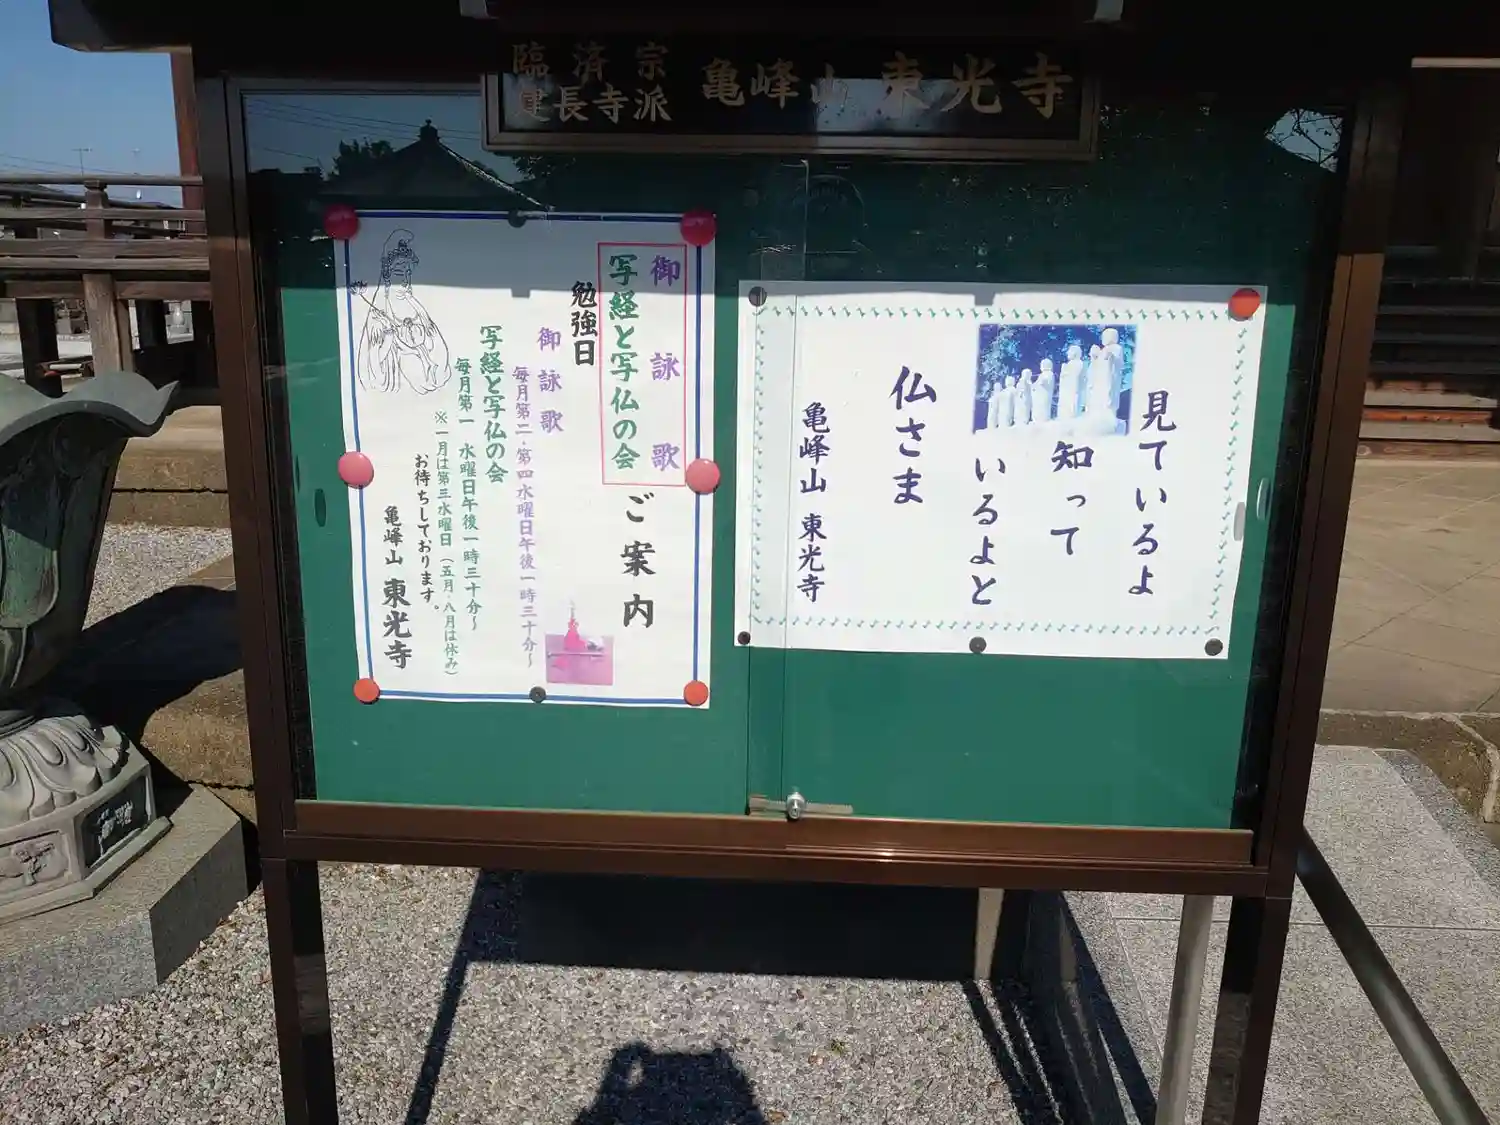 臨済宗
建長寺派
亀峰山 東光寺
御詠歌
写経と写仏の会
ご案内
勉強日
御詠歌
毎月第二・第四水曜日午後一時三十分~
写経と写仏の会
毎月第一 水曜日午後一時三十分~
※一月は第三水曜日(五月・八月は休み)
お待ちしております。
亀峰山 東光寺
見ているよ
知って
いるよと
仏さま
亀峰山 東光寺